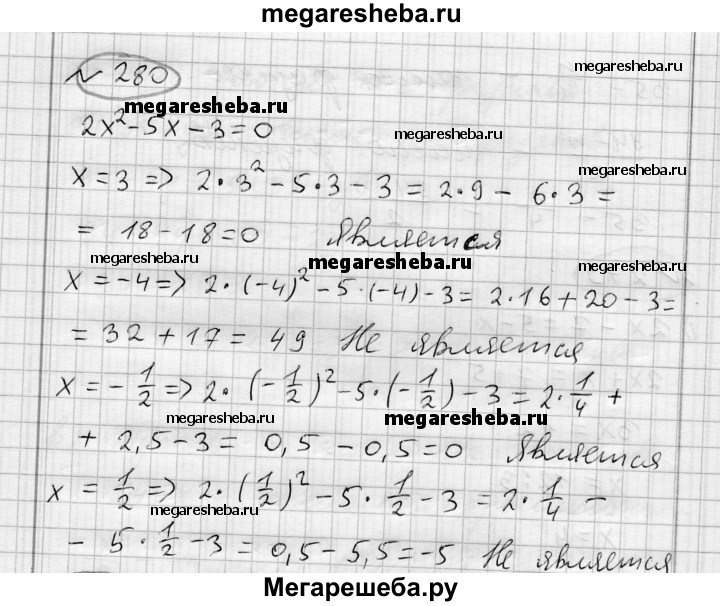 megaresheba.ru
№ 280
megaresheba.ru
megaresheba.ru
2x² - 5x - 3 = 0
megaresheba.ru
x = 3 => 2·3² - 5·3 - 3 = 2·9 - 6·3 =
= 18 - 18 = 0 Является
megaresheba.ru
megaresheba.ru
megaresheba.ru
x = -4 => 2·(-4)² - 5·(-4) - 3 = 2·16 + 20 - 3 =
= 32 + 17 = 49 Не является
x = -1/2 => 2·(-1/2)² - 5·(-1/2) - 3 = 2·1/4 +
megaresheba.ru
megaresheba.ru
+ 2,5 - 3 = 0,5 - 0,5 = 0 Является
x = 1/2 => 2·(1/2)² - 5·1/2 - 3 = 2·1/4 -
megaresheba.ru
megaresheba.ru
- 5·1/2 - 3 = 0,5 - 5,5 = -5 Не является
Мегарешеба.ру